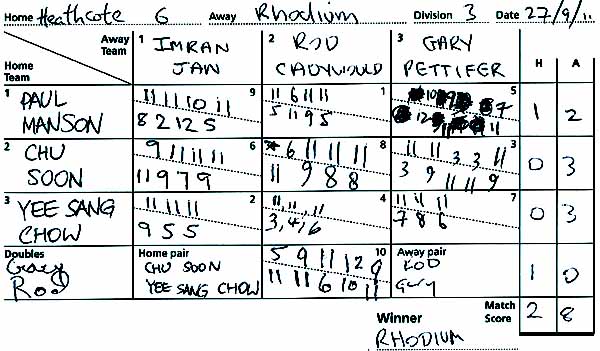 Home Heathcote G Away Rhodium Division 3 Date 27/9/11
Away Team 1 IMRAN JAN 2 ROD CADYWOULD 3 GARY PETTIFER H A
Home Team
1 PAUL MANSON
9 11 11 10 11
8 2 12 5
1 11 6 11 11
5 11 9 5
5
1 2
2 CHU SOON
6 9 11 11 11
11 9 7 9
8 6 11 11 11
11 9 8 8
3 11 11 3 3 11
3 9 11 11 9
0 3
3 YEE SANG CHOW
2 11 11 11
9 5 5
4 11, 11, 11
3, 4, 6
7 11 11 11
7 8 6
0 3
Doubles
Gary Rod
Home pair
CHU SOON
YEE SANG CHOW
10 5 9 11 12 9
11 11 6 10 11
Away pair
ROD
Gary
1 0
Match Score 2 8
Winner
RHODIUM